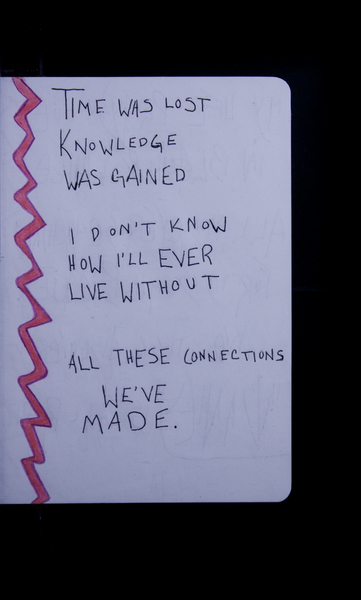 TIME WAS LOST
KNOWLEDGE
WAS GAINED
I DON'T KNOW
HOW I'LL EVER
LIVE WITHOUT
ALL THESE CONNECTIONS
WE'VE
MADE.